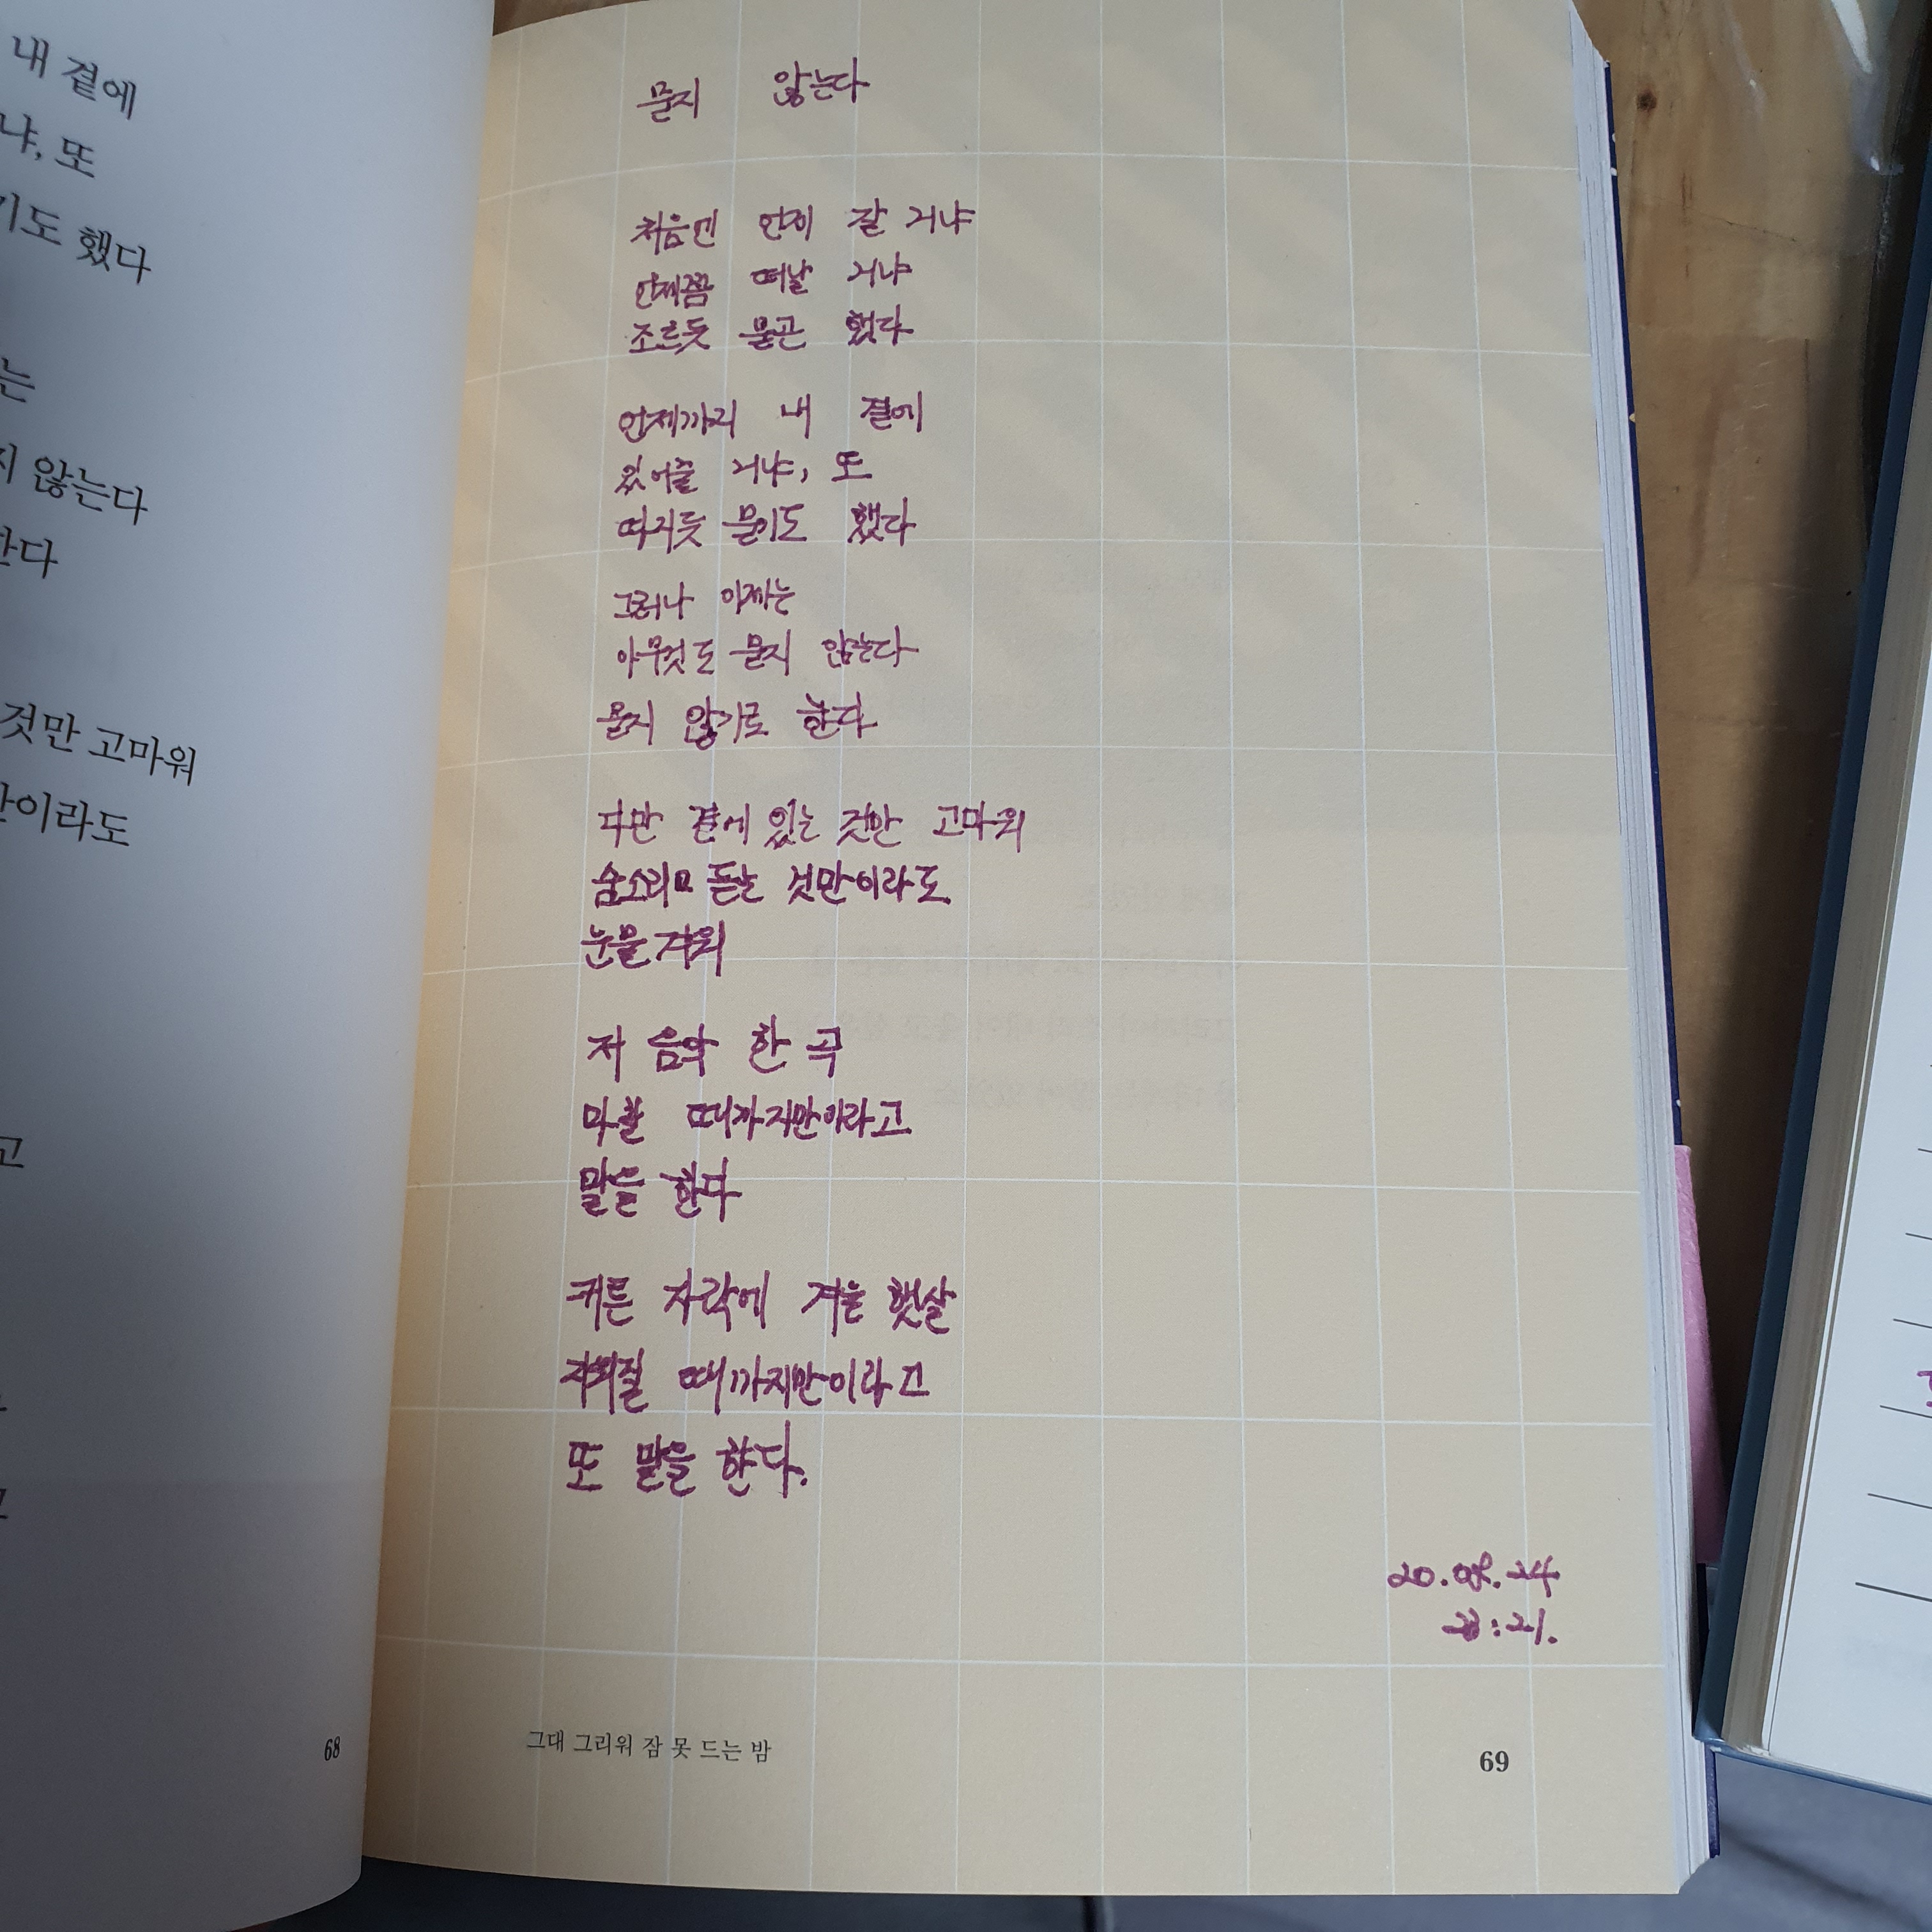 내 곁에
냐, 또
기도 했다
는
지 않는다
한다
것만 고마워
만이라도
고
68
묻지 않는다
처음엔 언제 갈 거냐
언제쯤 떠날 거냐
조르듯 묻곤 했다
언제까지 내 곁에
있어줄 거냐, 또
따지듯 묻기도 했다
그러나 이제는
아무것도 묻지 않는다
묻지 않기로 한다
다만 곁에 있는 것만 고마워
숨소리 듣는 것만이라도
눈물겨워
저 음악 한 곡
마칠 때까지만이라고
말을 한다
커튼 자락에 겨울 햇살
지워질 때까지만이라고
또 말을 한다.
20.08.24
:21.
그대 그리워 잠 못 드는 밤
69